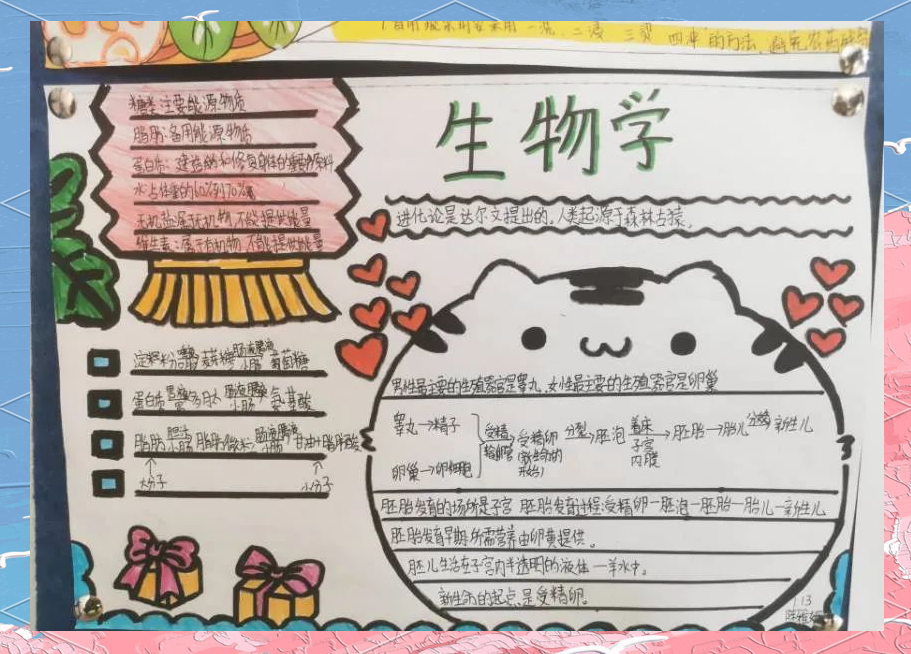 食用瓜果时要采用一洗、二浸 三烫 四冲的方法,避免农药
生物学
糖类:主要能源物质
脂肪:备用能源物质
蛋白质:建造细胞和修复身体的重要原料
水占体重的60%到70%
无机盐属无机物 不能提供能量
维生素:属于有机物 不能提供能量
进化论是达尔文提出的。人类起源于森林古猿。
淀粉 口腔 麦芽糖 肠液胰液 小肠 葡萄糖
蛋白质 胃液 胃 多肽 肠液胰液 小肠 氨基酸
脂肪 胆汁 小肠 脂肪微粒 肠液胰液 小肠 甘油+脂肪酸
大分子 小分子
男性最主要的生殖器官是睾丸,女性最主要的生殖器官是卵巢
睾丸→精子
卵巢→卵细胞
受精 输卵管 受精卵 (新生命的开始) 分裂→胚泡 着床 子宫内膜→胚胎→胎儿 分娩 新生儿
胚胎发育的场所是子宫 胚胎发育过程:受精卵—胚泡—胚胎—胎儿—新生儿
胚胎发育早期所需营养由卵黄提供。
胚儿生活在子宫内半透明的液体—羊水中。
新生命的起点是受精卵。
13